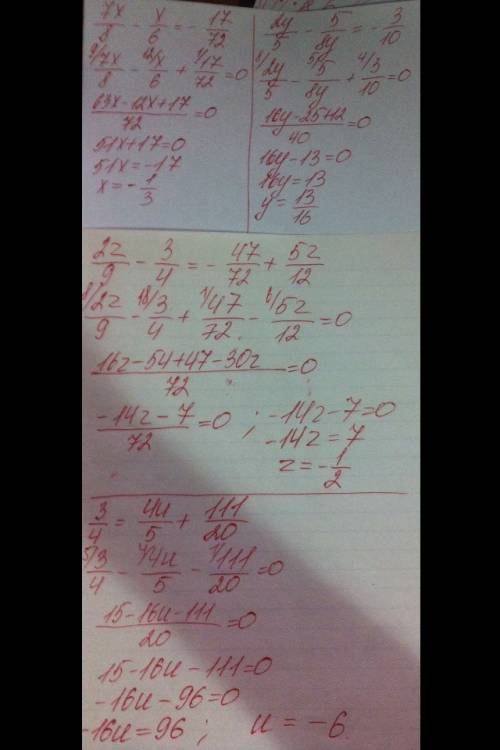 7x/8 - x/6 = - 17/72
9/7x/8 - 12/x/6 + 1/17/72 = 0
63x-12x+17/72 = 0
51x+17=0
51x=-17
x=-1/3
2y/5 - 5/8y = - 3/10
8/2y/5 - 5/5/8y + 4/3/10 = 0
16y-25+12/40 = 0
16y-13=0
16y=13
y=13/16
2z/9 - 3/4 = - 47/72 + 5z/12
8/2z/9 - 18/3/4 + 1/47/72 - 6/5z/12 = 0
16z-54+47-30z/72 = 0
-14z-7/72 = 0 ; -14z-7=0
-14z=7
z=-1/2
3/4 = 4u/5 + 111/20
5/3/4 - 4/4u/5 - 1/111/20 = 0
15-16u-111/20 = 0
15-16u-111=0
-16u-96=0
-16u=96 ; u=-6